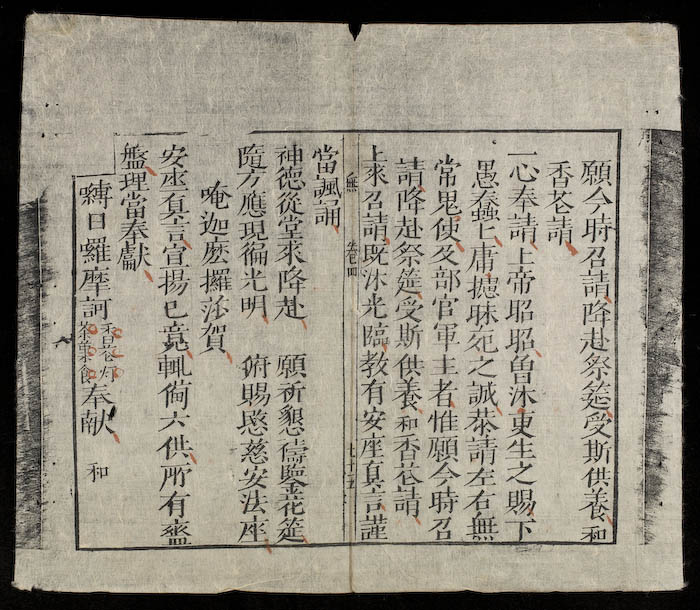 願今時召請降赴祭筵受斯供養 和
香花請
一心奉請上帝昭昭曾沐更生之賜下
愚蠢〻庸攄昧死之誠恭請左右無
常鬼使各部官軍主者惟願今時召
請降赴祭筵受斯供養 和香花請
上來召請既沐光臨教有安座真言謹
無 卷四 七十五
當諷誦
神德從堂來降赴 願祈懇禱鑒花筵
隨方應現徧光明 俯賜慜慈安法座
唵迦麽攞莎賀
安座真言宣揚已竟輒俻六供所有齋
盤理當奉獻
嚩日囉摩訶 香花灯 茶菓食 奉献 和